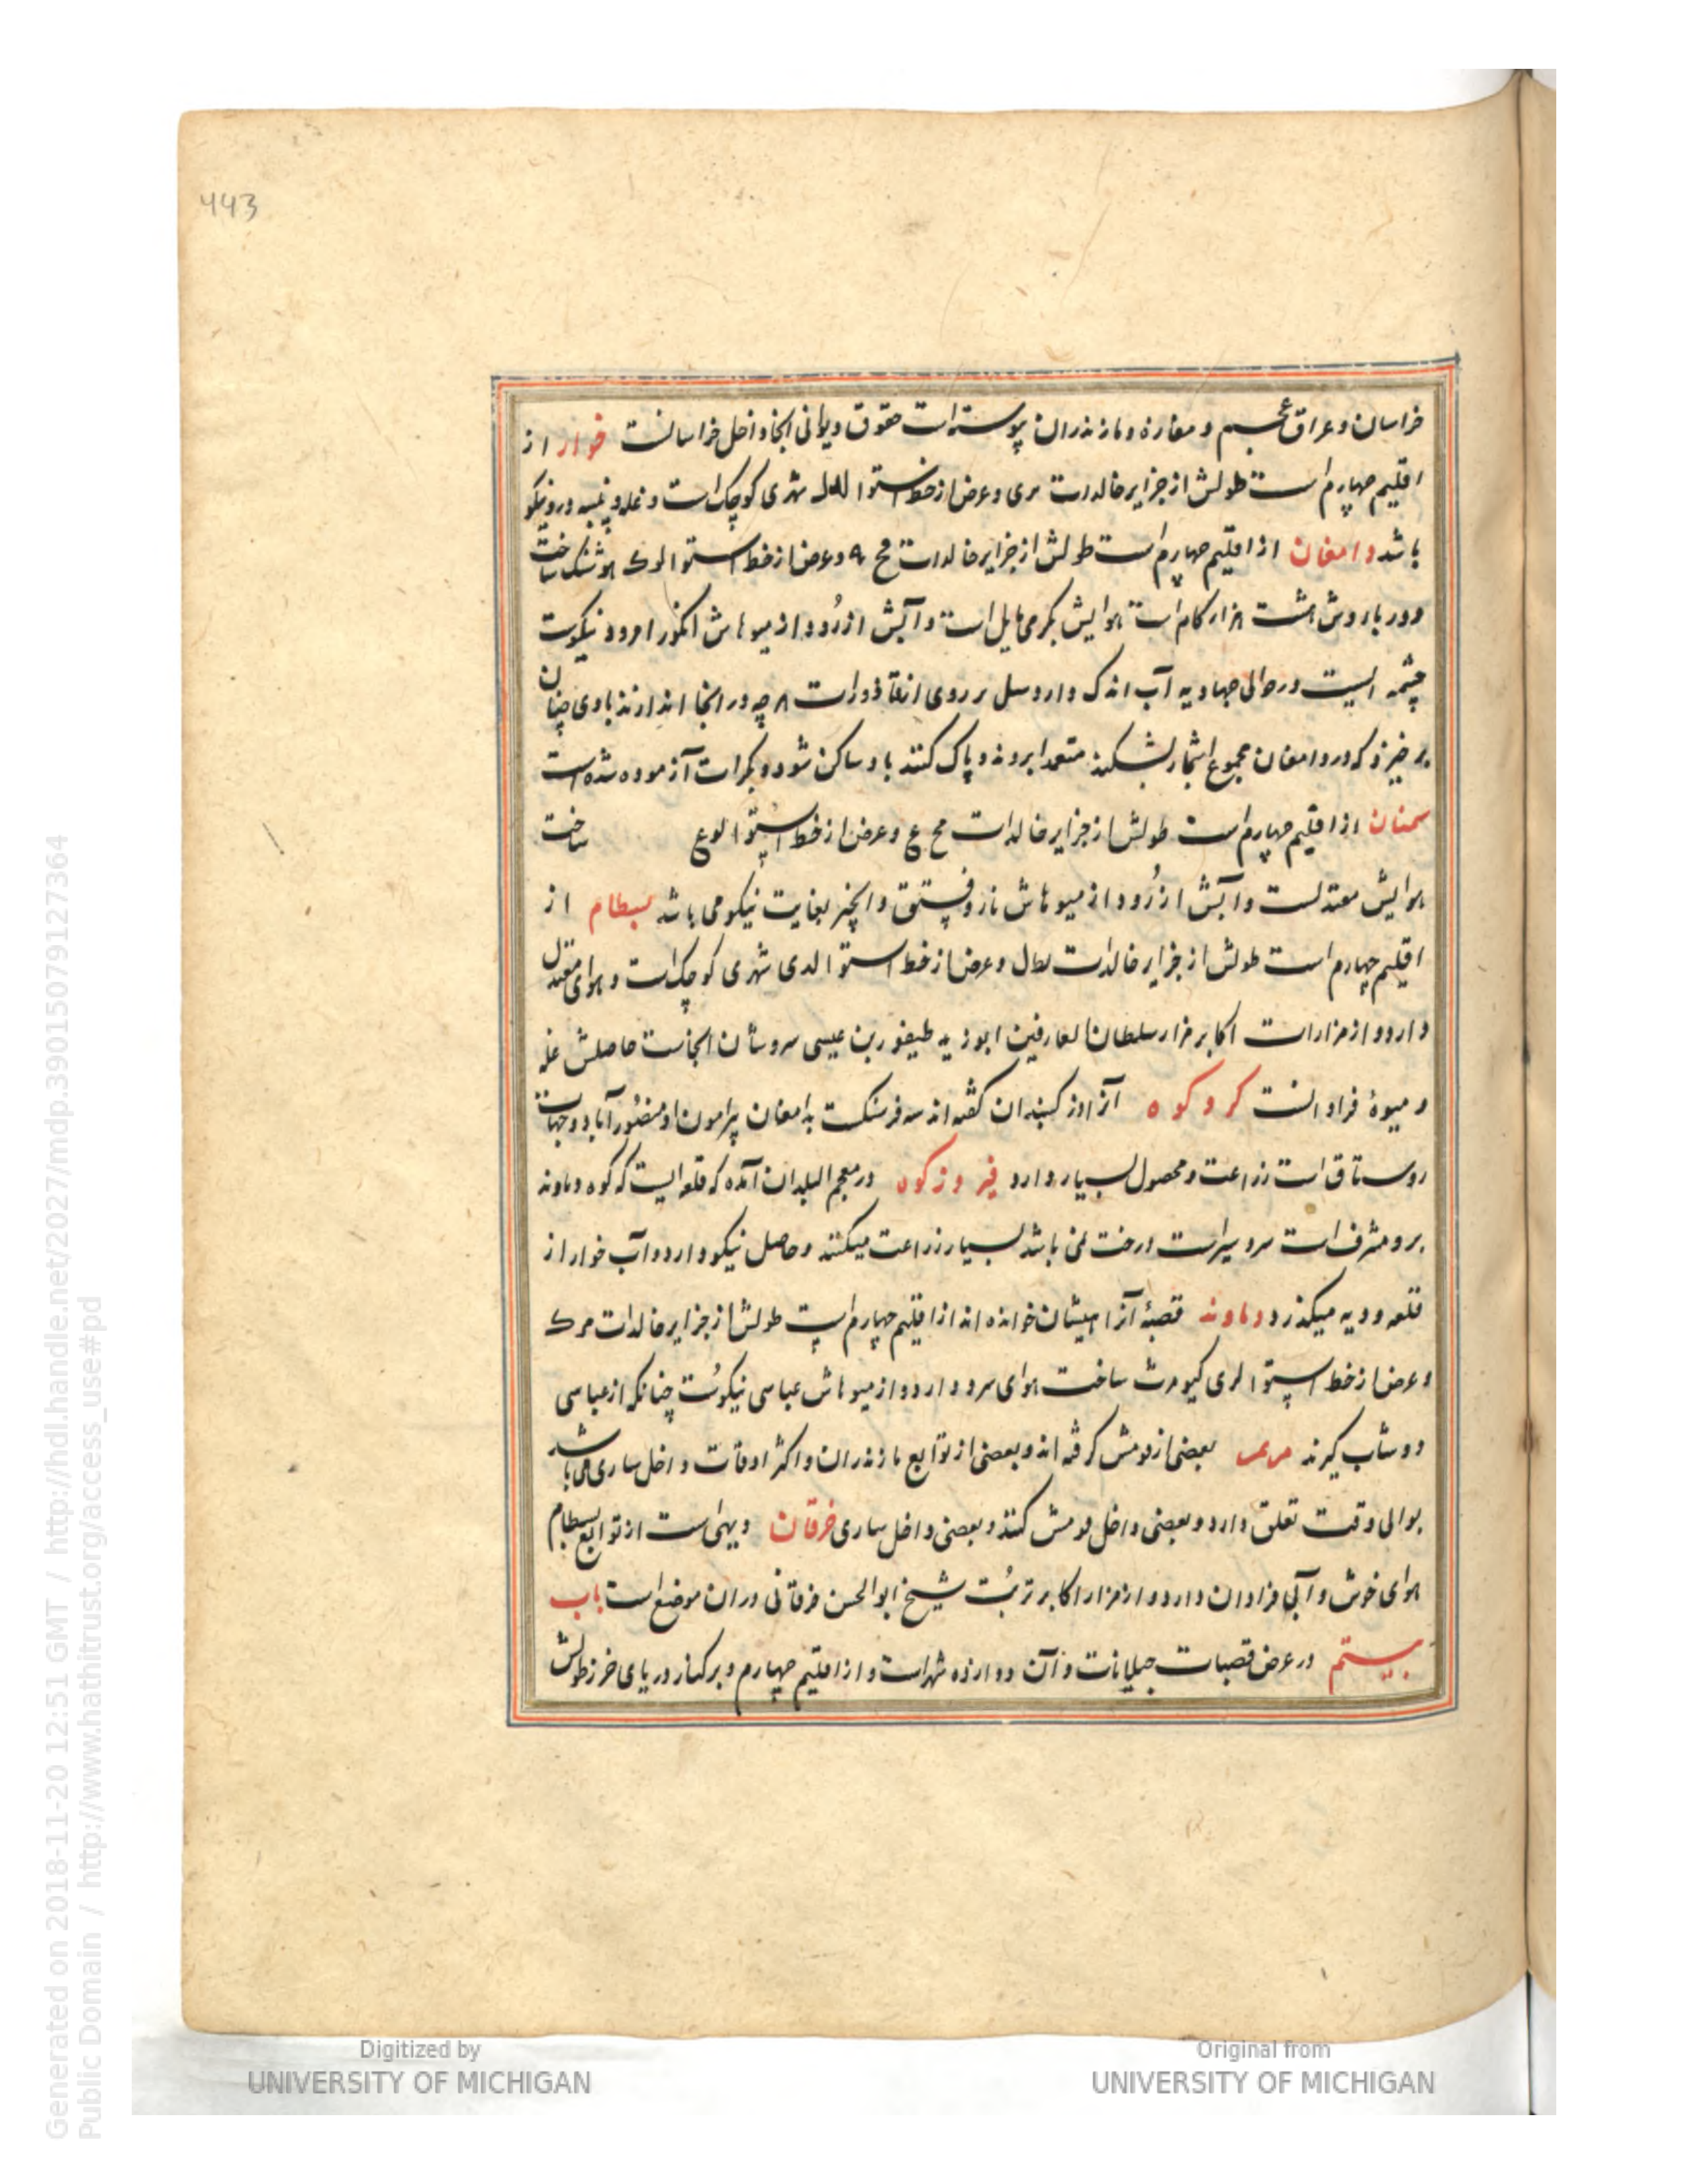 443
خراسان و عراق عجم و مفازه و مازندران پیوسته است حقوق دیوانی انجا داخل خراسانست خوار از
اقلیم چهارم است طولش از جزایر خالدات مری و عرض از خط استوا شهری کوچک است و غله و پنبه درو نیکو
باشد دامغان از اقلیم چهارم است طولش از جزایر خالدات مح ۹ و عرض از خط استوا لوک هوشنک ساخت
دور باروش هشت هزار کام است هوایش بکرمی مایل است و آبش از رود و از میوهاش انکور امرود نیکوست
چشمه ایست در حوالی آب اندک دارد بر روی از قاذورات هرچه در انجا اندازند بادی چنان
بر خیزد که در دامغان مجموع اشجار بشکند برونه و پاک کنند باد ساکن شود و بکرات آزموده شده است
سمنان از اقلیم چهارم است طولش از جزایر خالدات مح ع و عرض از خط استوا لوع ساخت
هوایش معتدلست و آبش از رود و از میوهاش نار و فستق و انجیر بغایت نیکو می باشد بسطام از
اقلیم چهارم است طولش از جزایر خالدات لطل و عرض از خط استوا لدی شهری کوچک است و هوای معتدل
دارد و از مزارات اکابر مزار سلطان العارفین ابویزید طیفور بن عیسی سروشان انجاست حاصلش غله
و میوهٔ فراوانست کردکوه آنرا دز کنبدان کفته اند سه فرسنکست بدامغان پیرامون او منصورآباد و
روستاق است زراعت و محصول بسیار دارد فیروزکوه در معجم البلدان آمده که قلعه ایست که کوه دماوند
برو مشرف است سردسیر است درخت نمی باشد بسیار زراعت میکنند و حاصل نیکو دارد و آب خوار از
قلعه و دیه میکذرد دماوند قصبهٔ آنرا پیشان خوانده اند از اقلیم چهارم است طولش از جزایر خالدات مرک
و عرض از خط استوا لری کیومرث ساخت هوای سرد دارد و از میوهاش عباسی نیکوست چنانکه از عباسی
دوشاب کیرند بعضی از قومش کرفته اند و بعضی از توابع مازندران و اکثر اوقات داخل ساری می باشد
بوالی وقت تعلق دارد و بعضی داخل قومش کنند و بعضی داخل ساری خرقان دیهی است از توابع بسطام
هوای خوش و آبی فراوان دارد و از مزار اکابر تربت شیخ ابوالحسن خرقانی دران موضع است باب
بیستم در عرض قصبات جیلانات و آن دوازده شهر است و از اقلیم چهارم و بر کنار دریای خزر طولش
Digitized by
UNIVERSITY OF MICHIGAN
Original from
UNIVERSITY OF MICHIGAN
Generated on 2018-11-20 12:51 GMT / http://hdl.handle.net/2027/mdp.39015079127364
Public Domain / http://www.hathitrust.org/access_use#pd